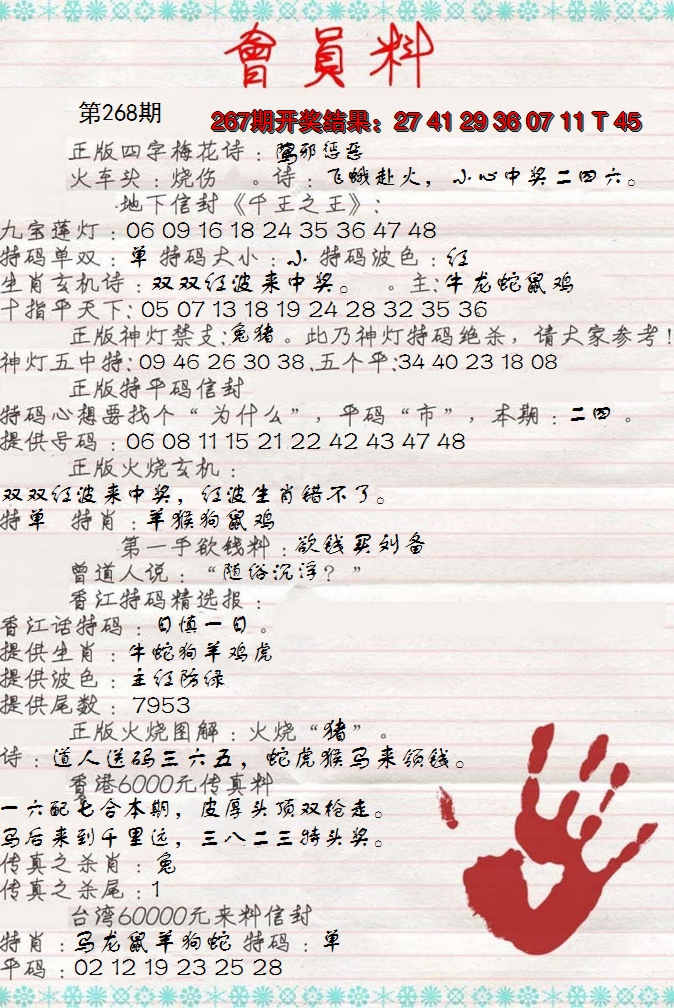 會員料
第268期
267期开奖结果：27 41 29 36 07 11 T 45
正版四字梅花诗：驾邪惩恶
火车头：烧伤 。诗：飞蛾赴火，小心中奖二四六。
地下信封《千王之王》：
九宝莲灯：06 09 16 18 24 35 36 47 48
特码单双：单 特码大小：小 特码波色：红
生肖玄机诗：双双红波来中奖。 。主：牛龙蛇鼠鸡
十指平天下：05 07 13 18 19 24 28 32 35 36
正版神灯禁支：兔猪。此乃神灯特码绝杀，请大家参考！
神灯五中特：09 46 26 30 38.五个平：34 40 23 18 08
正版特平码信封
特码心想要找个“为什么”，平码“市”，本期：二四 。
提供号码：06 08 11 15 21 22 42 43 47 48
正版火烧玄机：
双双红波来中奖，红波生肖错不了。
特单 特肖：羊猴狗鼠鸡
第一手欲钱料：欲钱买刘备
曾道人说：“随俗沉浮？”
香江特码精选报：
香江话特码：日慎一日。
提供生肖：牛蛇狗羊鸡虎
提供波色：主红防绿
提供尾数：7953
正版火烧图解：火烧“猪”。
诗：道人送码三六五，蛇虎猴马来领钱。
香港6000元传真料
一六配七合本期，皮厚头顶双枪走。
马后来到千里远，三八二三特头奖。
传真之杀肖：兔
传真之杀尾：1
台湾60000元来料信封
特肖：马龙鼠羊狗蛇 特码：单
平码：02 12 19 23 25 28